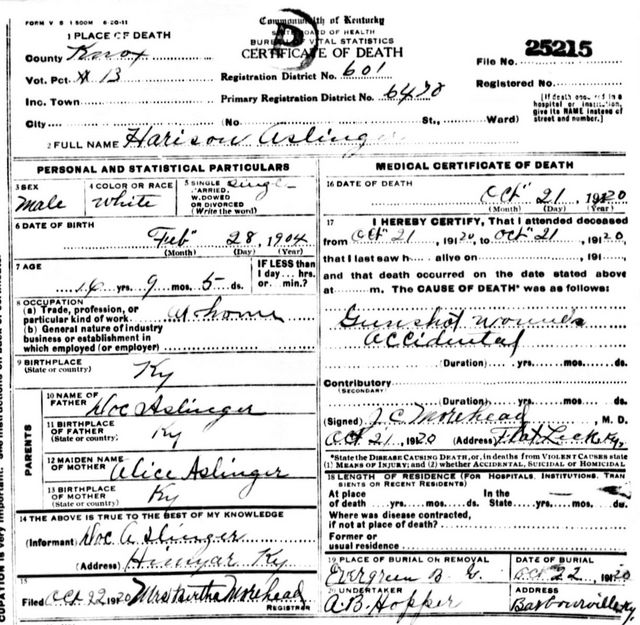 FORM V S 1 500M 6-20-11
Commonwealth of Kentucky
STATE BOARD OF HEALTH
BUREAU OF VITAL STATISTICS
CERTIFICATE OF DEATH
D
25215
1 PLACE OF DEATH
County Knox
Vot. Pct. # 13
Inc. Town
City (No. St., Ward)
Registration District No. 601
Primary Registration District No. 6470
File No.
Registered No.
[If death occurred in a hospital or institution, give its NAME instead of street and number.]
2 FULL NAME Harison Aslinger
PERSONAL AND STATISTICAL PARTICULARS
3 SEX Male
4 COLOR OR RACE White
5 SINGLE, MARRIED, WIDOWED OR DIVORCED (Write the word) Single
6 DATE OF BIRTH
Feb 28, 1904
(Month) (Day) (Year)
7 AGE
16 yrs. 9 mos. 5 ds.
IF LESS than 1 day... hrs. or min.?
8 OCCUPATION
(a) Trade, profession, or particular kind of work at home
(b) General nature of industry business or establishment in which employed (or employer)
9 BIRTHPLACE
(State or country) Ky
PARENTS
10 NAME OF FATHER Doc Aslinger
11 BIRTHPLACE OF FATHER (State or country) Ky
12 MAIDEN NAME OF MOTHER Alice Aslinger
13 BIRTHPLACE OF MOTHER (State or country) Ky
14 THE ABOVE IS TRUE TO THE BEST OF MY KNOWLEDGE
(Informant) Doc Aslinger
(Address) Himyar Ky
15
Filed Oct 22 1920 Mrs Bertha Morehead
REGISTRAR
MEDICAL CERTIFICATE OF DEATH
16 DATE OF DEATH
Oct 21 1920
(Month) (Day) (Year)
17 I HEREBY CERTIFY, That I attended deceased
from Oct 21, 1920, to Oct 21, 1920,
that I last saw h alive on , 191 ,
and that death occurred on the date stated above
at m. The CAUSE OF DEATH* was as follows:
Gunshot wounds
accidental
(Duration) yrs. mos. ds.
Contributory
(SECONDARY)
(Duration) yrs. mos. ds.
(Signed) J.C. Morehead, M. D.
Oct 21, 1920 (Address) Flat Lick Ky
*State the DISEASE CAUSING DEATH, or, in deaths from VIOLENT CAUSES state (1) MEANS OF INJURY; and (2) whether ACCIDENTAL, SUICIDAL OR HOMICIDAL
18 LENGTH OF RESIDENCE (FOR HOSPITALS, INSTITUTIONS, TRANSIENTS OR RECENT RESIDENTS)
At place of death yrs. mos. ds. In the State yrs. mos. ds.
Where was disease contracted, if not at place of death?
Former or usual residence
19 PLACE OF BURIAL OR REMOVAL Evergreen
DATE OF BURIAL Oct 22, 1920
20 UNDERTAKER A.B. Hopper
ADDRESS Barbourville Ky